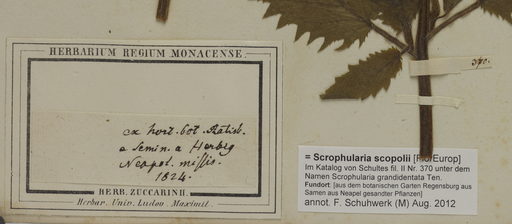 HERBARIUM REGIUM MONACENSE.
ex hort. bot. Ratisb.
e Semin. a Herbeg
Neapol. missis.
1824.
HERB. ZUCCARINII.
Herbar. Univ. Ludov. Maximil.
370.
= Scrophularia scopolii [Fl. Europ]
Im Katalog von Schultes fil. II Nr. 370 unter dem
Namen Scrophularia grandidentata Ten.
Fundort: [aus dem botanischen Garten Regensburg aus
Samen aus Neapel gesandter Pflanzen]
annot. F. Schuhwerk (M) Aug. 2012